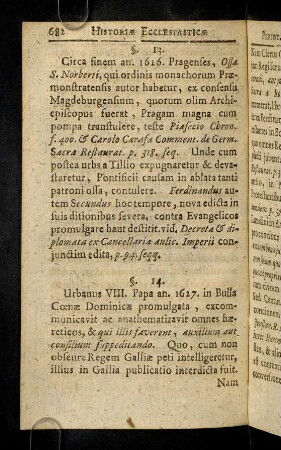 682 HISTORIÆ ECCLESIASTICÆ
§. 13.
Circa finem an. 1626. Pragenses, Ossa
S. Norberti, qui ordinis monachorum Præ-
monstratensis autor habetur, ex consensu
Magdeburgensium, quorum olim Archi-
episcopus fuerat, Pragam magna cum
pompa transtulere, teste Piasecio Chron.
f. 400. & Carolo Carafa Comment. de Germ.
Sacra Restaurat. p. 318. seq. Unde cum
postea urbs a Tillio expugnaretur & deva-
staretur, Pontificii causam in ablata tanti
patroni ossa, contulere. Ferdinandus au-
tem Secundus hoc tempore, nova edicta in
suis ditionibus severa, contra Evangelicos
promulgare haut destitit. vid. Decreta & di-
plomata ex Cancellariæ Aulic. Imperii con-
junctim edita, p. 94. seqq.
§. 14.
Urbanus VIII. Papa an. 1627. in Bulla
Cœnæ Dominicæ promulgata, excom-
municavit ac anathematizavit omnes hæ-
reticos, & qui illis faverent, auxilium aut
consilium suppeditando. Quo, cum non
obscure Regem Galliæ peti intelligeretur,
illius in Gallia publicatio interdicta fuit.
Nam